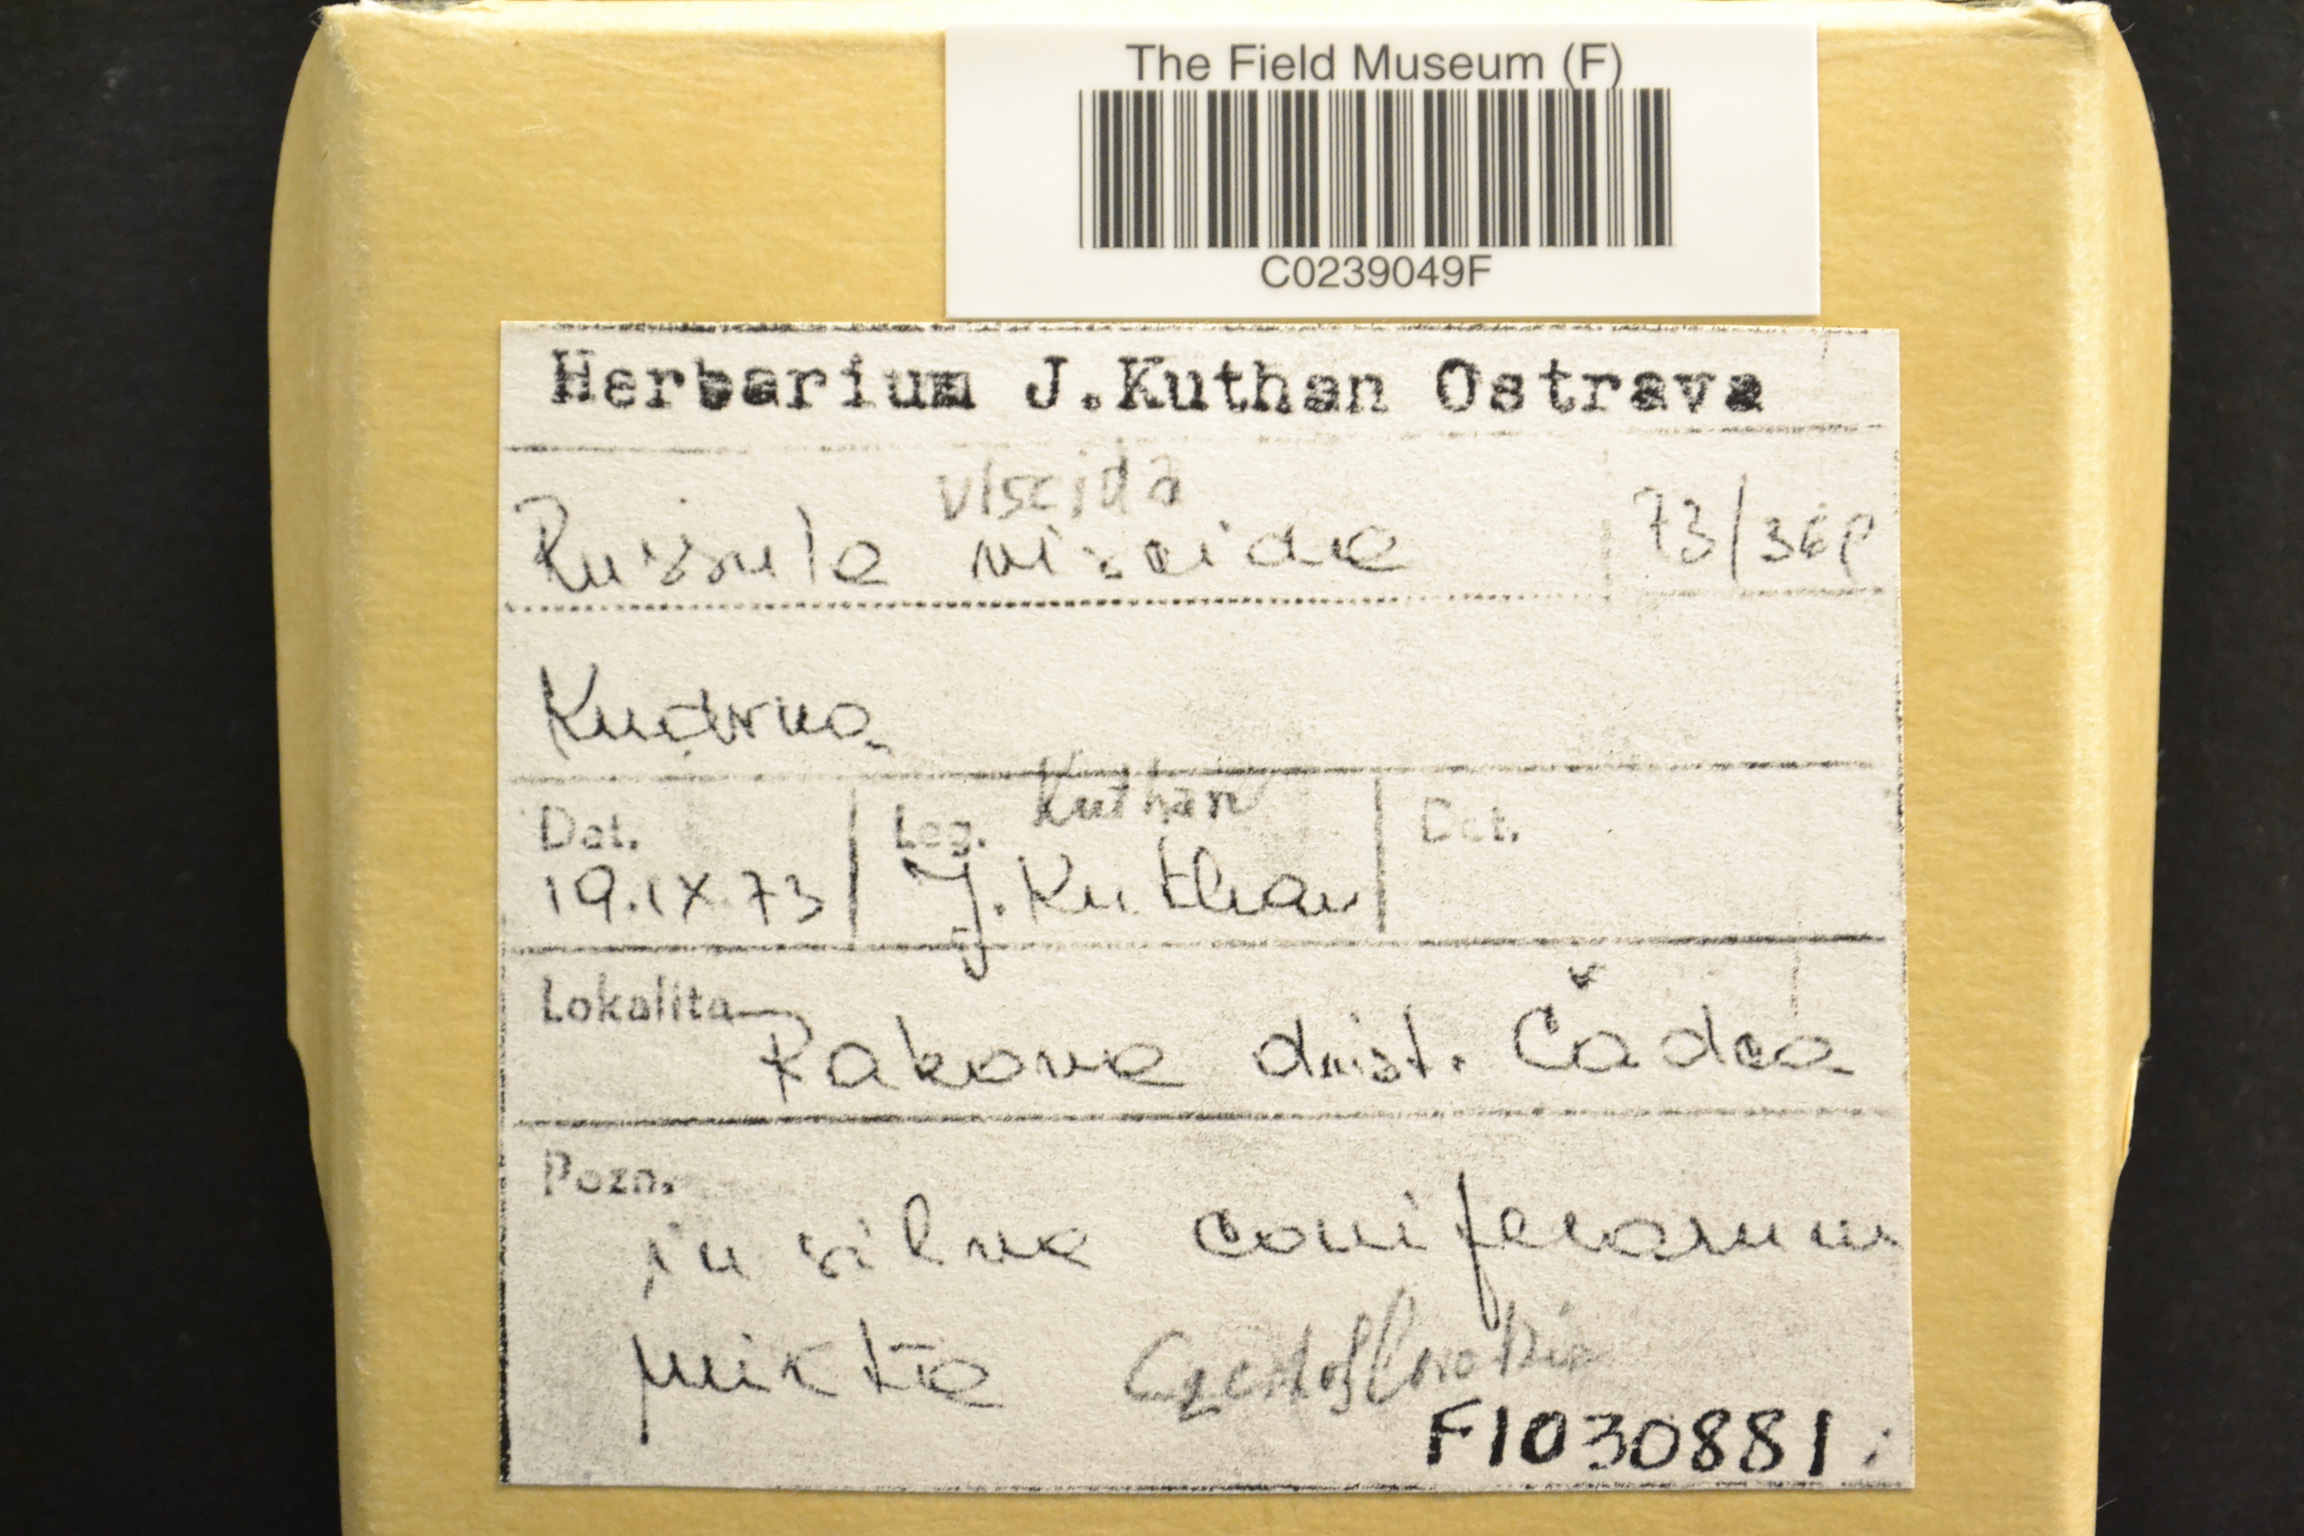 The Field Museum (F)
C0239049F
Herbarium J.Kuthan Ostrava
viscida
Russula viscida
73/36p
Kudrna
Dat.
19.IX.73
Leg. Kuthan
J. Kuthan
Det.
Lokalita
Rakova dist. Čadca
Pozn.
in silva coniferarum
mixta Czechoslovakia
F1030881